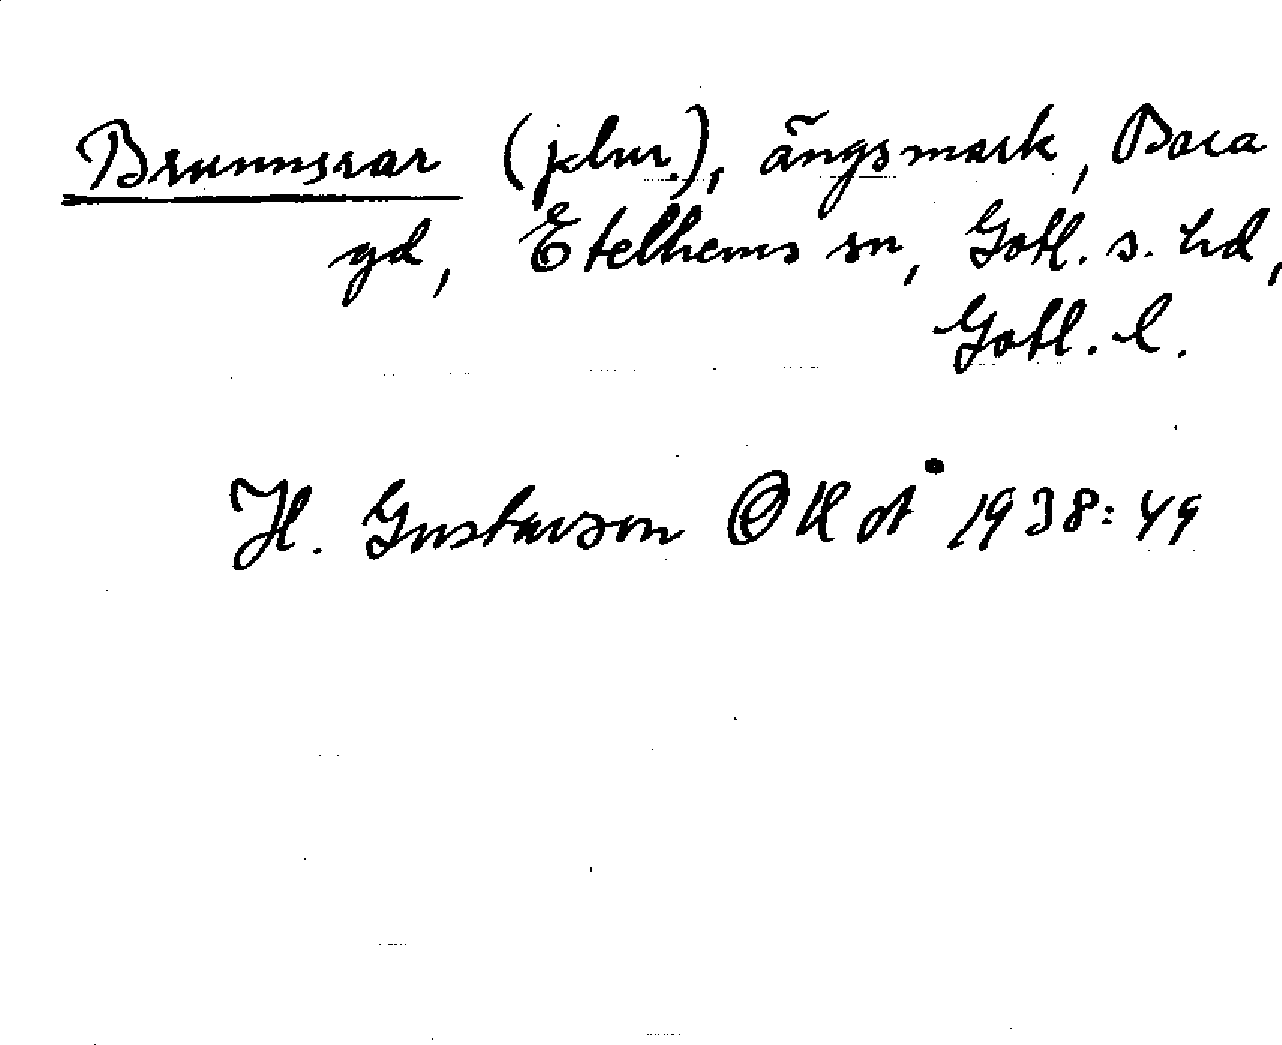 Brunnsrar (plur.), ängsmark, Bara
gd, Etelhems sn, Gotl. s. hd,
Gotl. l.
H. Gustavson OKÅ 1938:49